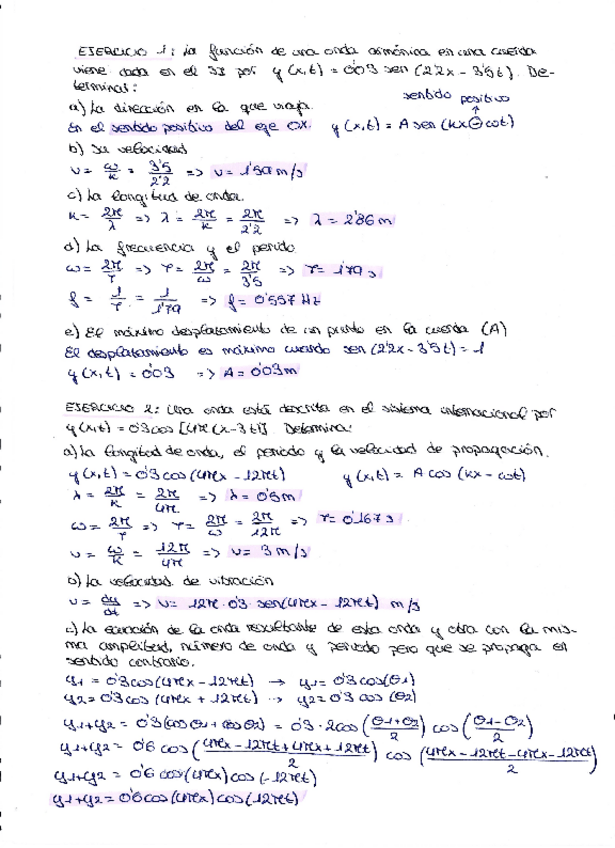 EJERCICIO 1: la función de una onda armónica en una cuerda
viene dada en el SI por y(x,t) = 0'03 sen (2'2x - 3'5t). De-
termina:
a) La dirección en la que viaja.
sentido positivo
En el sentido positivo del eje OX. y(x,t) = A sen (kx ⊖ ωt)
b) Su velocidad
v = ω/k = 3'5/2'2 => v = 1'59 m/s
c) La longitud de onda.
k = 2π/λ => λ = 2π/k = 2π/2'2 => λ = 2'86 m
d) La frecuencia y el periodo
ω = 2π/T => T = 2π/ω = 2π/3'5 => T = 1'79 s
f = 1/T = 1/1'79 => f = 0'557 Hz
e) El máximo desplazamiento de un punto en la cuerda (A)
El desplazamiento es máximo cuando sen (2'2x - 3'5t) = 1
y(x,t) = 0'03 => A = 0'03 m
EJERCICIO 2: Una onda está descrita en el sistema internacional por
y(x,t) = 0'3 cos [4π(x-3t)]. Determina:
a) La longitud de onda, el periodo y la velocidad de propagación.
y(x,t) = 0'3 cos (4πx - 12πt) y(x,t) = A cos (kx - ωt)
λ = 2π/k = 2π/4π => λ = 0'5 m
ω = 2π/T => T = 2π/ω = 2π/12π => T = 0'167 s
v = ω/k = 12π/4π => v = 3 m/s
b) La velocidad de vibración
v = dy/dt => v = 12π · 0'3 sen (4πx - 12πt) m/s
c) La ecuación de la onda resultante de esta onda y otra con la mis-
ma amplitud, número de onda y periodo pero que se propaga en
sentido contrario.
y1 = 0'3 cos (4πx - 12πt) → y1 = 0'3 cos (θ1)
y2 = 0'3 cos (4πx + 12πt) → y2 = 0'3 cos (θ2)
y1+y2 = 0'3 (cos θ1 + cos θ2) = 0'3 · 2 cos ((θ1+θ2)/2) cos ((θ1-θ2)/2)
y1+y2 = 0'6 cos ((4πx - 12πt + 4πx + 12πt)/2) cos ((4πx - 12πt - 4πx - 12πt)/2)
y1+y2 = 0'6 cos (4πx) cos (-12πt)
y1+y2 = 0'6 cos (4πx) cos (-12πt)